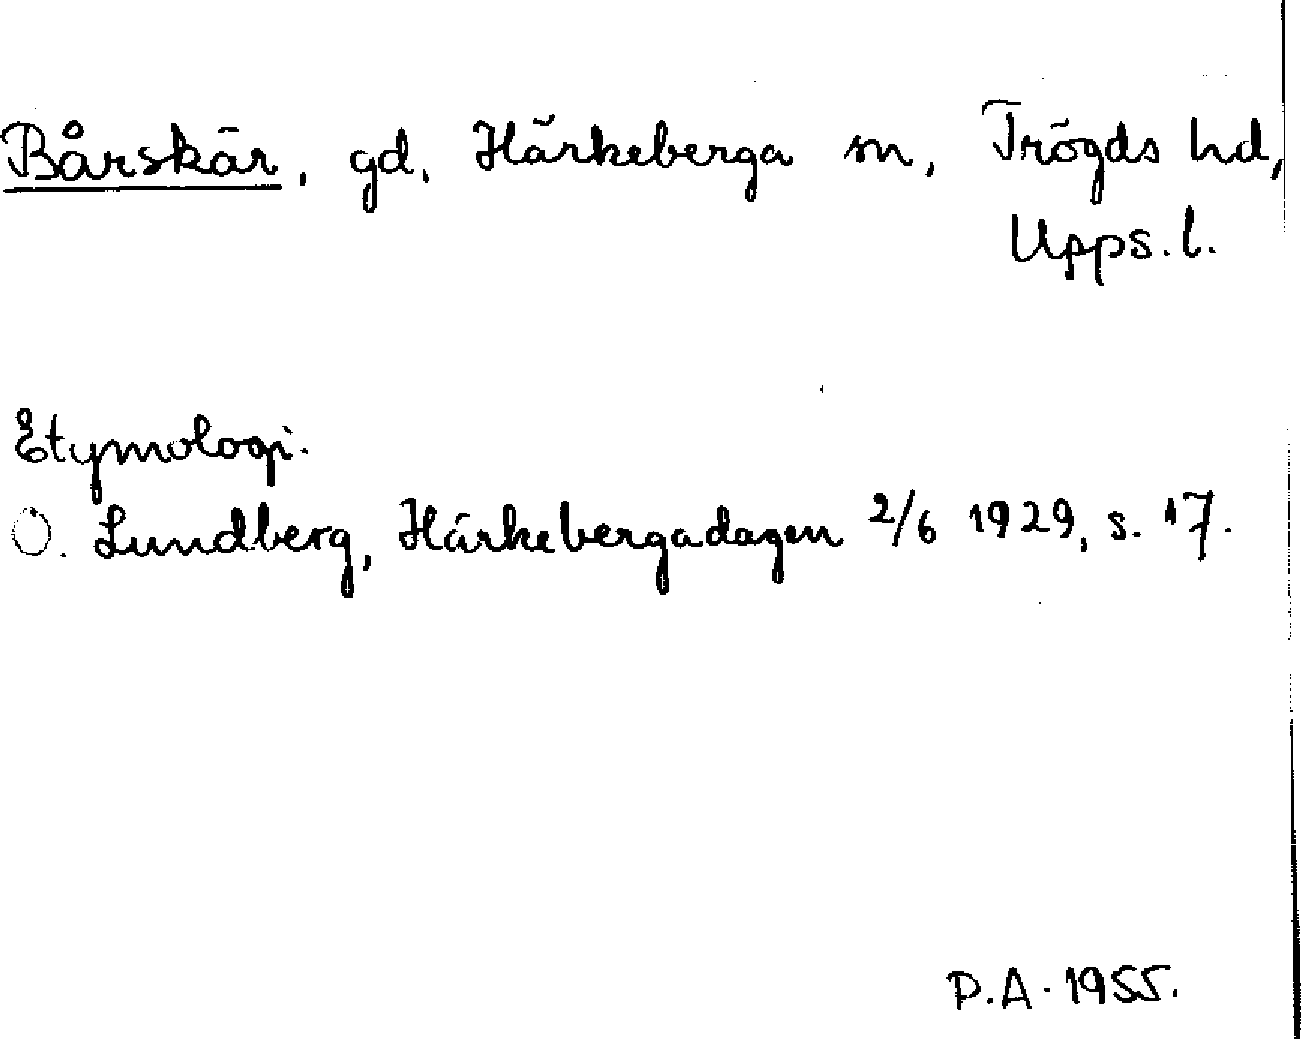 Bårskär, gd, Härkeberga sn, Trögds hd,
Upps. l.
Etymologi.
O. Lundberg, Härkebergadagen 2/6 1929, s. 17.
P.A. 1955.